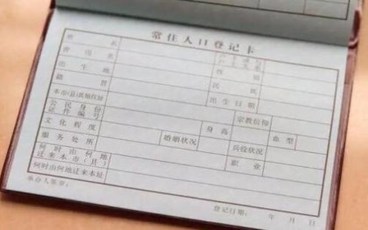 常住人口登记卡
姓 名
曾 用 名
性 别
出 生 地
民 族
籍 贯
出 生 日 期
本市(县)其他住址
宗教信仰
公 民 身 份
证 件 编 号
身 高
血 型
文 化 程 度
婚姻状况
兵役状况
服 务 处 所
职 业
何 时 由 何 地
迁 来 本 市 (县)
何时由何地迁来本址
承办人签章:
登记日期: 年 月 日